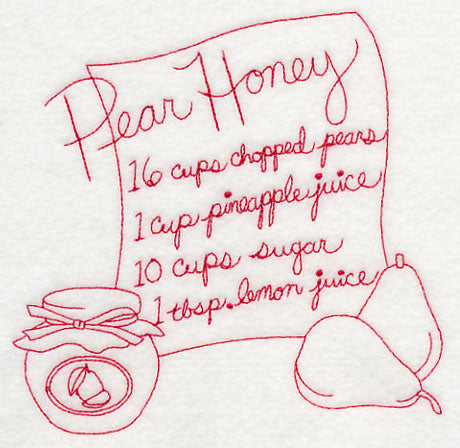 Pear Honey
16 cups chopped pears
1 cup pineapple juice
10 cups sugar
1 tbsp. lemon juice